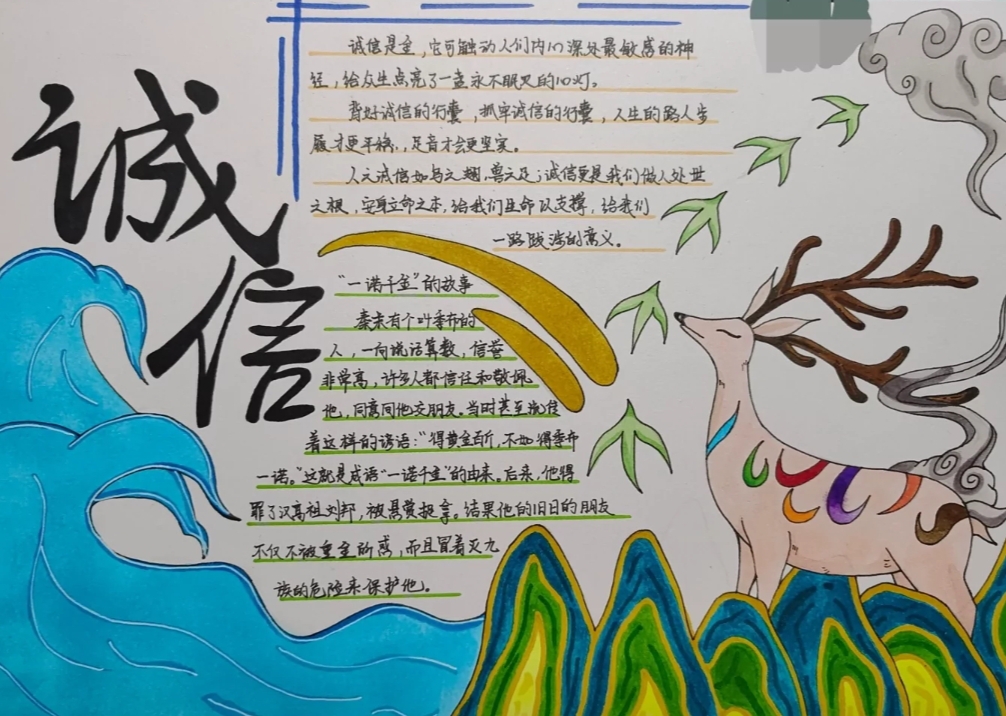 诚信
诚信是金，它可触动人们内心深处最敏感的神
经，给众生点亮了一盏永不眠灭的心灯。
背好诚信的行囊，抓牢诚信的行囊，人生的路人步
履才更平稳，足音才会更坚实。
人无诚信如鸟无翅，兽无足；诚信更是我们做人处世
之根，安身立命之本，给我们生命以支撑，给我们
一路跋涉的意义。
“一诺千金”的故事
秦末有个叶季布的
人，一向说话算数，信誉
非常高，许多人都信任和敬佩
他，同离同他交朋友。当时甚至流传
着这样的谚语：“得黄金百斤，不如得季布
一诺。”这就是成语“一诺千金”的由来。后来，他得
罪了汉高祖刘邦，被悬赏捉拿。结果他的旧日的朋友
不仅不被重金所惑，而且冒着灭九
族的危险来保护他。